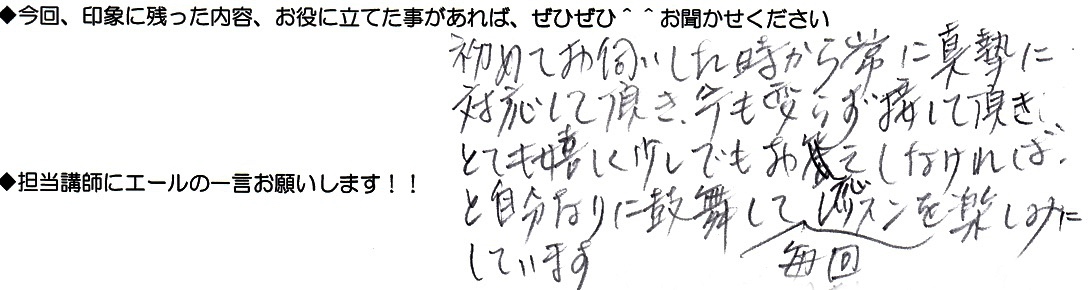 ◆今回、印象に残った内容、お役に立てた事があれば、ぜひぜひ＾＾お聞かせください
初めてお伺いした時から常に真摯に
対応して頂き、今も変らず接して頂き、
とても嬉しく少しでもお応えしなければ、
◆担当講師にエールの一言お願いします！！
と自分なりに鼓舞して、毎回レッスンを楽しみに
しています